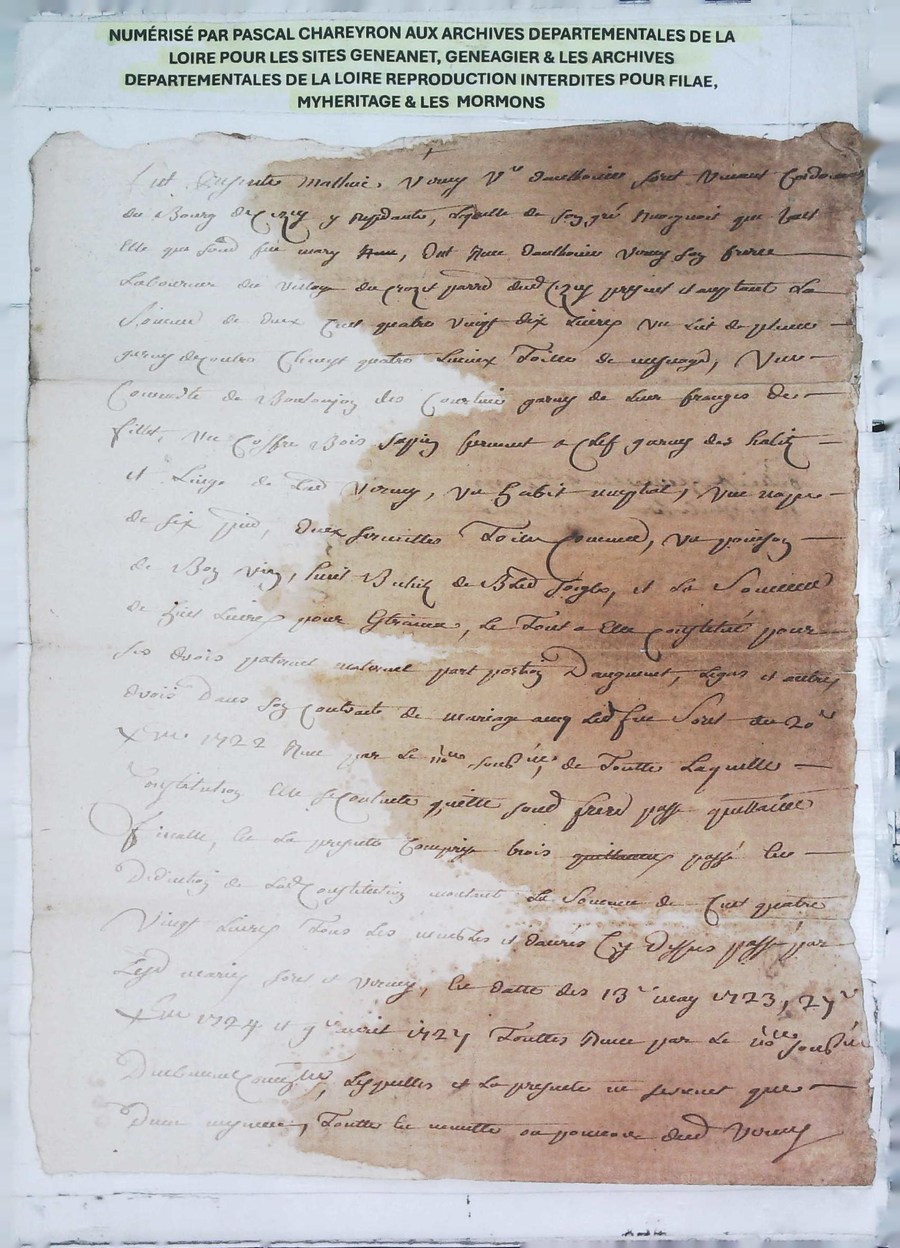 NUMÉRISÉ PAR PASCAL CHAREYRON AUX ARCHIVES DEPARTEMENTALES DE LA
LOIRE POUR LES SITES GENEANET, GENEAGIER & LES ARCHIVES
DEPARTEMENTALES DE LA LOIRE REPRODUCTION INTERDITES POUR FILAE,
MYHERITAGE & LES MORMONS
fut presente Mathie Verney Vve danthoine foret vivant Cordonnier
du Bourg de Cizey y residante, laquelle de son gré
elle que feu mary, dit danthoine Verney son frere
Laboureur du village du Crozet parroisse dud Cizey present et acceptant La
Somme de deux Cent quatre vingt dix Livres un Lict de plume
garny Toille de mesnage, Une
Couverte de des Courtines garny de Leur franges de
fillet, un Coffre Bois sapin fermant a Clef garny des habits
et Linge de Lad Verney, un habit nuptial, une nappe
de six pied, deux serviettes Toille Commune, un poinson
de Bon vin, huit Bichets de Bled seigle, et La Somme
de Livres pour, Le Tout a Elle Constitué pour
ses droits paternel maternel part portion Daugment, Legat et autres
droits Dans son Contract de mariage avec Led feu foret du 20e
Xbre 1722 Receu par Le nore soubsné, de Toutte Laquelle
Constitution Elle se Contente quitte sond frere passe quittance
finalle, en La presente Compris trois quittances passé en
Deduction de Lad Constitution montant La Somme de Cent quatre
Vingt Livres Tous Les meubles et danrés Cy Dessus passé par
Lesd mariés foret et Verney, en datte des 13e may 1723, 27e
Xbre 1724 et 9e avril 1727 Touttes Receu par Le nore soubsné
Lesquelles et La presente ne servent que
Dune mesme, Toutte en minutte au pouvoir dud Verney